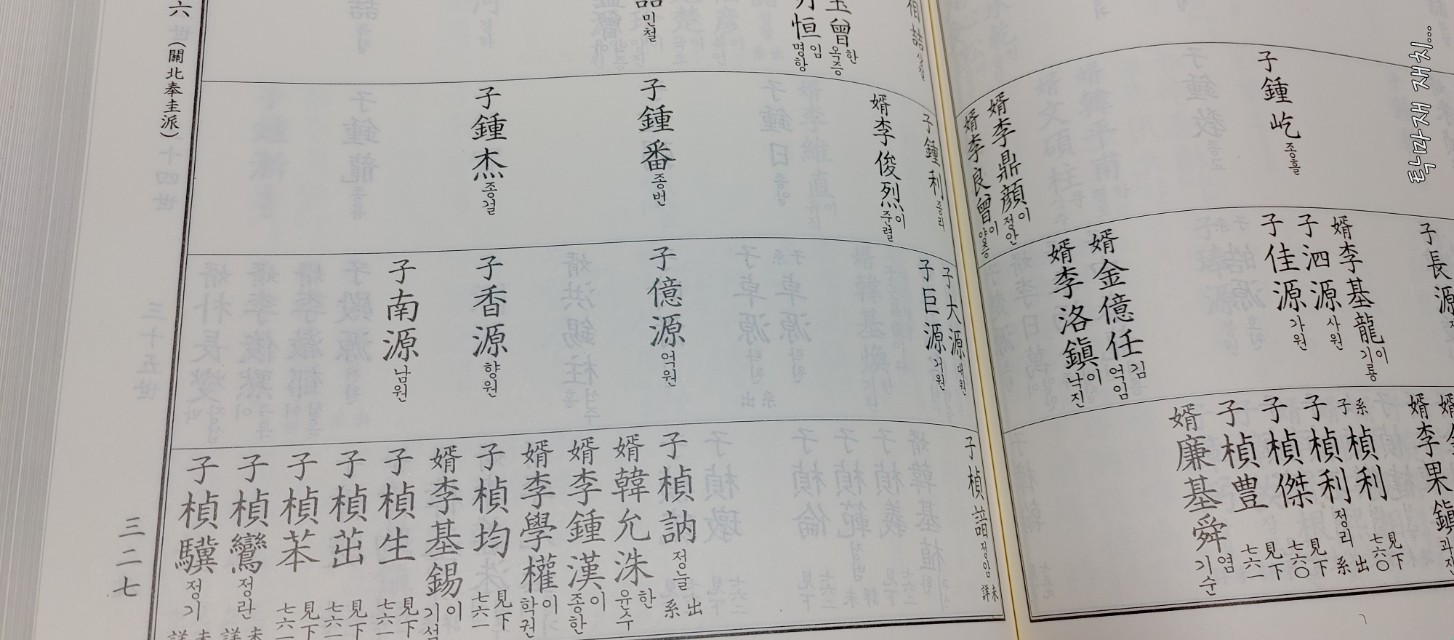 탁마재 재치...
子鍾屹 종흘
婿李鼎顔 이 정안
婿李良曾 이 양증
子長源
婿李基龍 이 기룡
子泗源 사원
子佳源 가원
婿金億任 김 억임
婿李洛鎭 이 낙진
婿李果鎭
系子楨利 出 見下 七六〇
子楨利 정리 系
子楨傑 見下 七六〇
子楨豊 見下 七六一
婿廉基舜 염 기순
六 (關北奉圭派)
三二七
玉曾 한 옥증
明恒 임 명항
민철
子鍾利 종리
婿李俊烈 이 준렬
子鍾番 종번
子鍾杰 종걸
子大源 대원
子巨源 거원
子億源 억원
子香源 향원
子南源 남원
子楨
子楨訥 정눌 出系
婿韓允洙 한 윤수
婿李鍾漢 이 종한
婿李學權 이 학권
子楨均 見下 七六一
婿李基錫 이 기석
子楨生 見下 七六一
子楨茁 見下 七六一
子楨苯 見下 七六一
子楨鸞 정란 未詳
子楨驥 정기 未詳